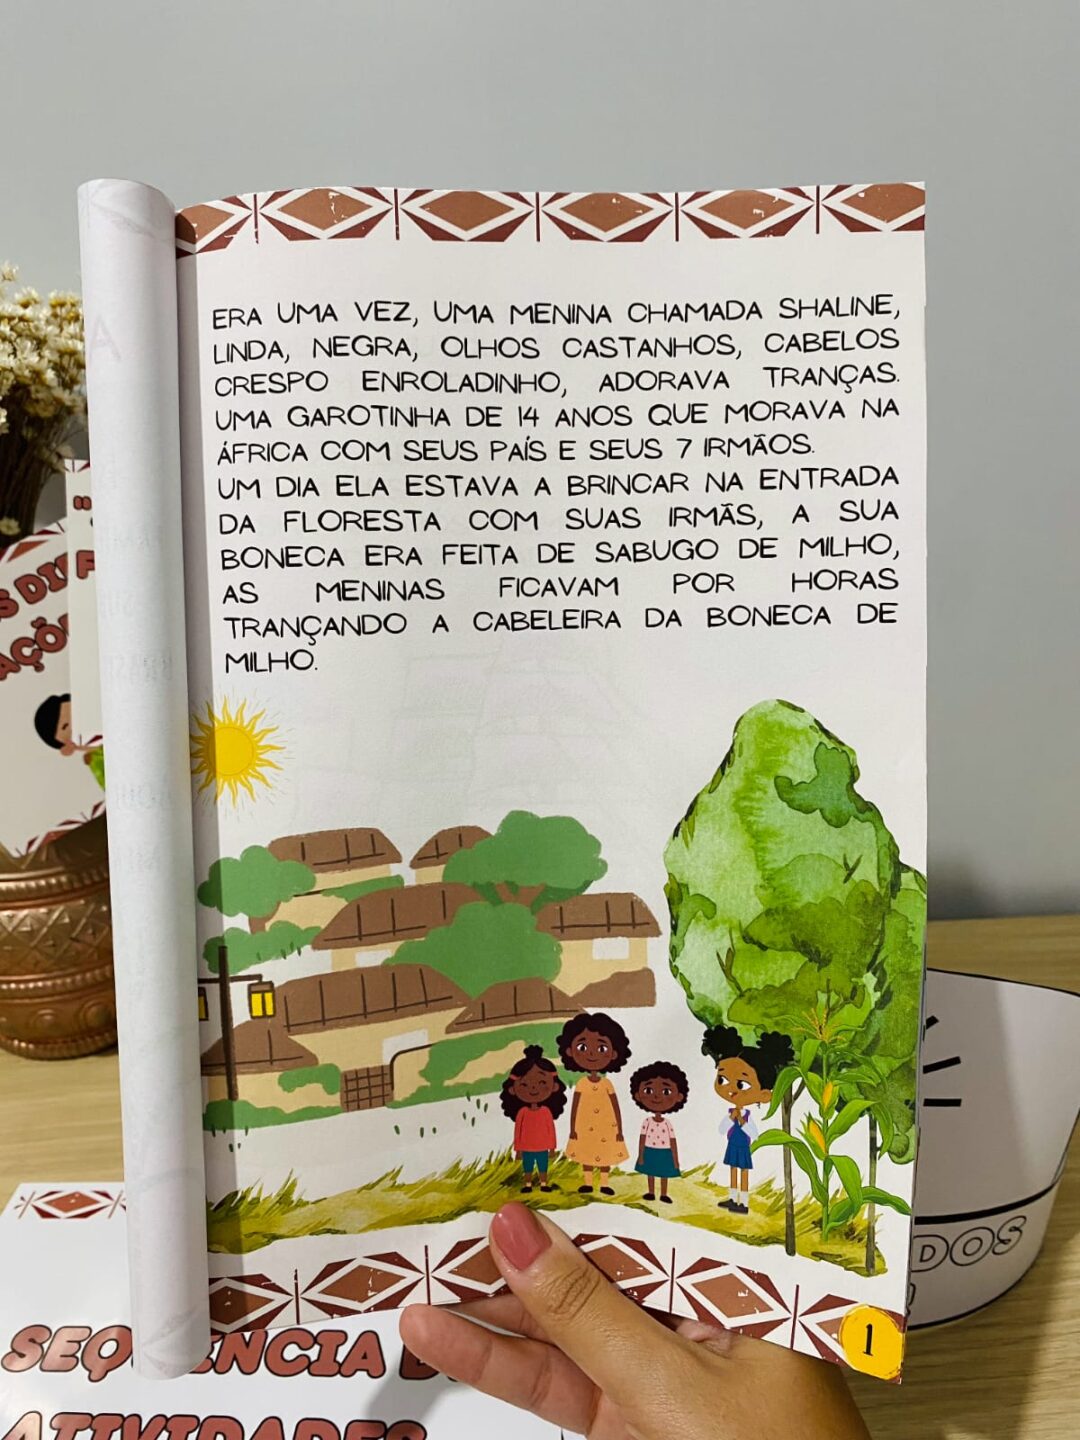 ERA UMA VEZ, UMA MENINA CHAMADA SHALINE,
LINDA, NEGRA, OLHOS CASTANHOS, CABELOS
CRESPO ENROLADINHO, ADORAVA TRANÇAS.
UMA GAROTINHA DE 14 ANOS QUE MORAVA NA
ÁFRICA COM SEUS PAÍS E SEUS 7 IRMÃOS.
UM DIA ELA ESTAVA A BRINCAR NA ENTRADA
DA FLORESTA COM SUAS IRMÃS, A SUA
BONECA ERA FEITA DE SABUGO DE MILHO,
AS MENINAS FICAVAM POR HORAS
TRANÇANDO A CABELEIRA DA BONECA DE
MILHO.
1
ATIVIDADES